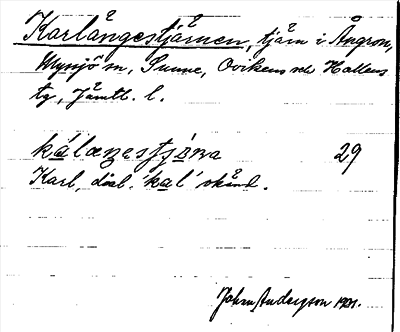 Karlångestjärnen, tjärn i Ångron,
Myssjö sn, Sunne, Ovikens och Hallens
tg, Jämtl. l.
kálaŋestjǝ́na 29
Karl, dial. 'kal' okänd.
John Anderzson 1921.